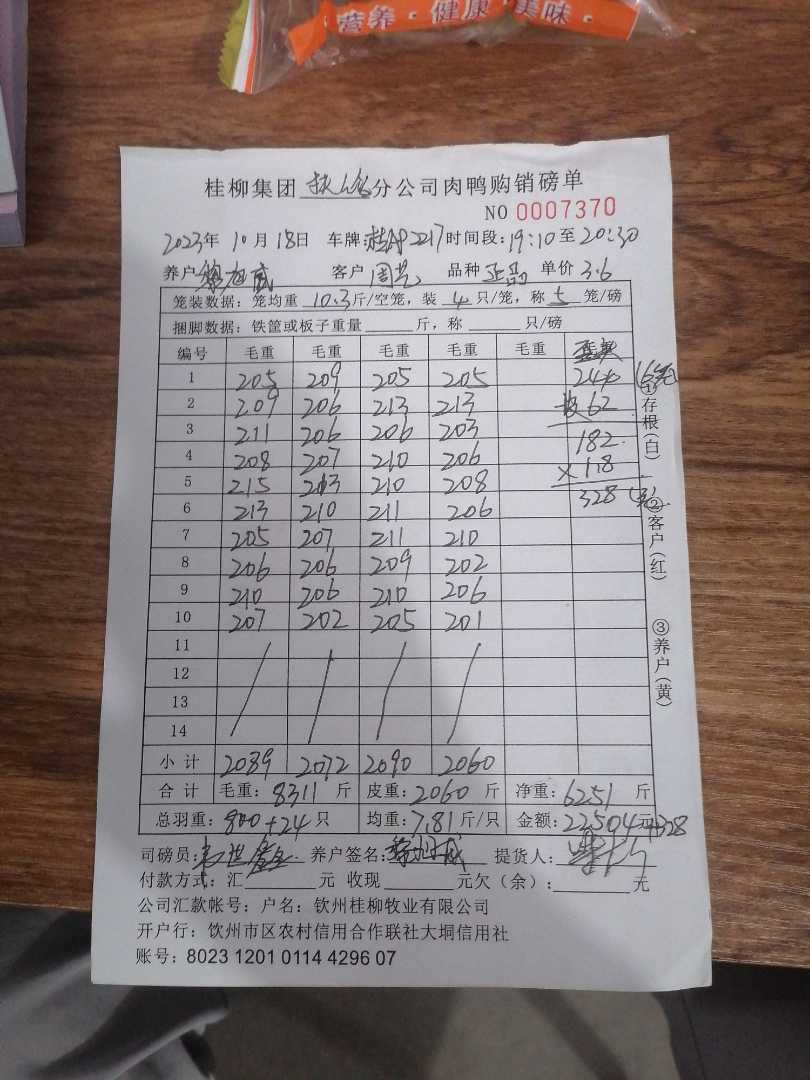 营养·健康·美味·
桂柳集团 分公司肉鸭购销磅单
NO 0007370
2023年 10月 18日 车牌 桂AP2217 时间段:19:10至20:30
养户 客户 周 品种 正品 单价 3.6
笼装数据:笼均重 10.3斤/空笼,装 4 只/笼,称 5 笼/磅
捆脚数据:铁筐或板子重量 斤,称 只/磅
编号 毛重 毛重 毛重 毛重 毛重
1 205 209 205 205 244 (6
2 209 206 213 213 62
3 211 206 206 203 182
4 208 207 210 206 × 1.8
5 215 213 210 208 328
6 213 210 211 206
7 205 207 211 210
8 206 206 209 202
9 210 206 210 206
10 207 202 205 201
11
12
13
14
小计 2089 2072 2090 2060
合计 毛重:8311 斤 皮重:2060 斤 净重:6251 斤
总羽重:800+24 只 均重:7.81斤/只 金额:22504元+328
司磅员: 养户签名: 提货人:
付款方式:汇 元 收现 元欠(余): 元
公司汇款帐号:户名:钦州桂柳牧业有限公司
开户行:钦州市区农村信用合作联社大垌信用社
账号:8023 1201 0114 4296 07
①存根(白) ②客户(红) ③养户(黄)